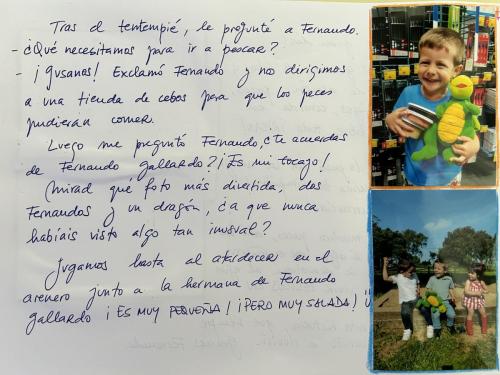 Tras el tentempié, le pregunté a Fernando.
- ¿Qué necesitamos para ir a pescar?
- ¡Gusanos! Exclamó Fernando y nos dirigimos
a una tienda de cebos para que los peces
pudieran comer.
Luego me preguntó Fernando, ¿te acuerdas
de Fernando gallardo? ¡Es mi tocayo!
¡Mirad que foto más divertida, dos
Fernandos y un dragón, ¿a que nunca
habíais visto algo tan inusual?
Jugamos hasta al atardecer en el
arenero junto a la hermana de Fernando
gallardo ¡ES MUY PEQUEÑA! ¡PERO MUY SALADA!